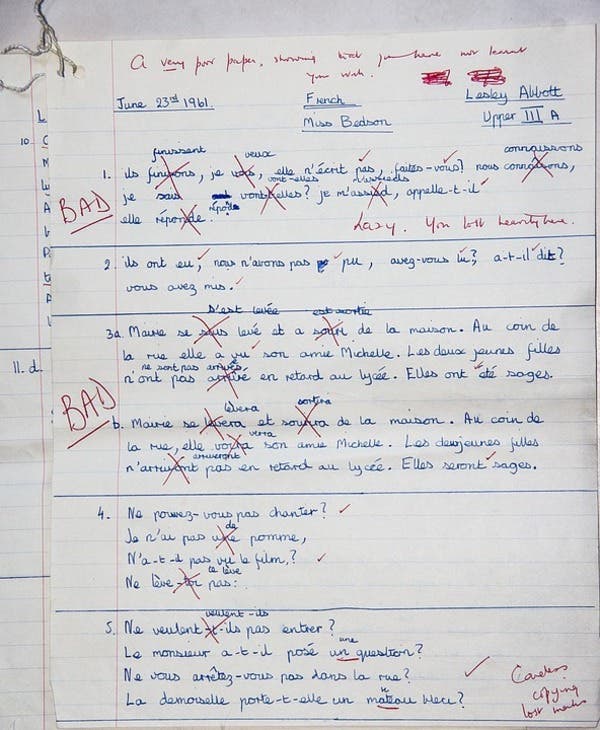 A very poor paper, showing that you have not learnt
your work.
June 23rd 1961.
French
Lesley Abbott
Miss Bedson
Upper III A
finissent
veux
connaissons
1. ils finissons, je vais, elle n'écrit pas, faites-vous? nous connaisons,
vont-elles
m'assieds
je suis vont-elles? je m'assied, appelle-t-il
BAD
répond
elle réponde.
Lazy. You lost heavily here.
2. ils ont eu, nous n'avons pas pu, avez-vous lu? a-t-il dit?
vous avez mis.
s'est levée
est sortie
3a. Marie se levé et a de la maison. Au coin de
la rue elle a vu son amie Michelle. Les deux jeunes filles
ne sont pas arrivées
n'ont pas arrivé en retard au lycée. Elles ont été sages.
BAD
lèvera
sortira
b. Marie se levera et de la maison. Au coin de
verra
la rue, elle voira son amie Michelle. Les deux jeunes filles
arriveront
n'arriveront pas en retard au lycée. Elles seront sages.
4. Ne pouvez-vous pas chanter?
de
Je n'ai pas une pomme,
N'a-t-il pas vu le film?
te lève
Ne lève-toi pas.
veulent-ils
5. Ne veulent-t-ils pas entrer?
une
Le monsieur a-t-il posé un question?
Ne vous arrêtez-vous pas dans la rue?
La demoiselle porte-t-elle un mateau bleu?
Careless
copying
lost marks
10
11. d.